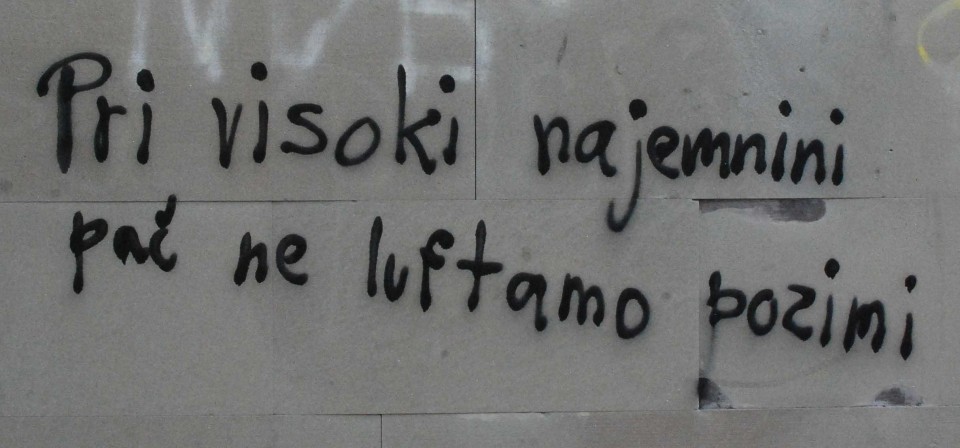 Pri visoki najemnini
pač ne luftamo pozimi